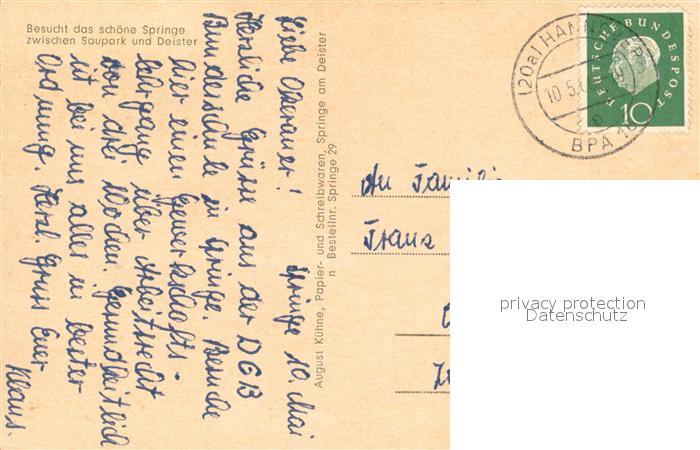 Besucht das schöne Springe
zwischen Saupark und Deister
Springe 10. Mai
Liebe
Herzliche Grüße aus der DGB
Bundesschule in Springe. Besuche
hier einen Gewerkschafts-
lehrgang über Arbeitsrecht
von drei Wochen. Gesundheitlich
ist bei uns alles in bester
Ordnung. Herzl. Gruss Euer
Klaus.
August Kühne, Papier- und Schreibwaren, Springe am Deister
n Bestellnr. Springe 29
(20a) HANN
10.5.
BPA
DEUTSCHE BUNDESPOST
10
An Familie
Franz
privacy protection
Datenschutz